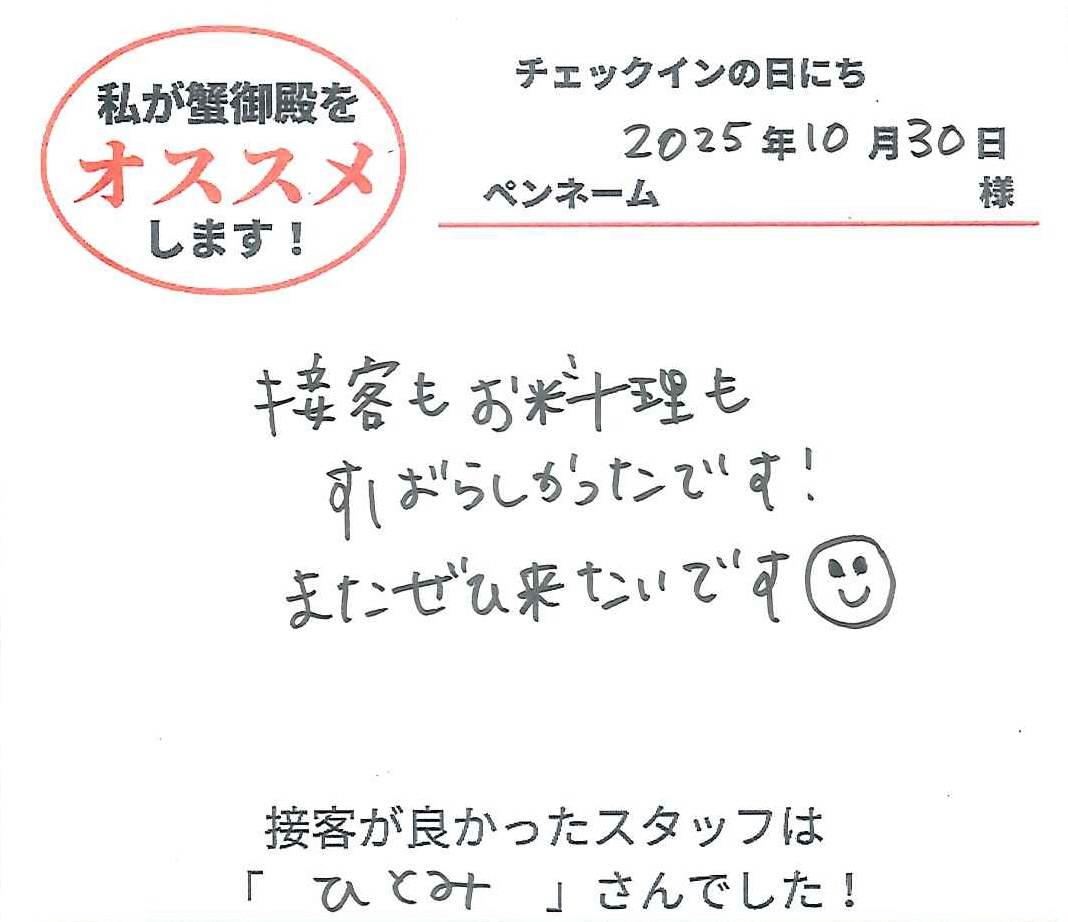 私が蟹御殿を
オススメ
します！
チェックインの日にち
2025年10月30日
ペンネーム 様
接客もお料理も
すばらしかったです！
またぜひ来たいです
接客が良かったスタッフは
「 ひとみ 」さんでした！